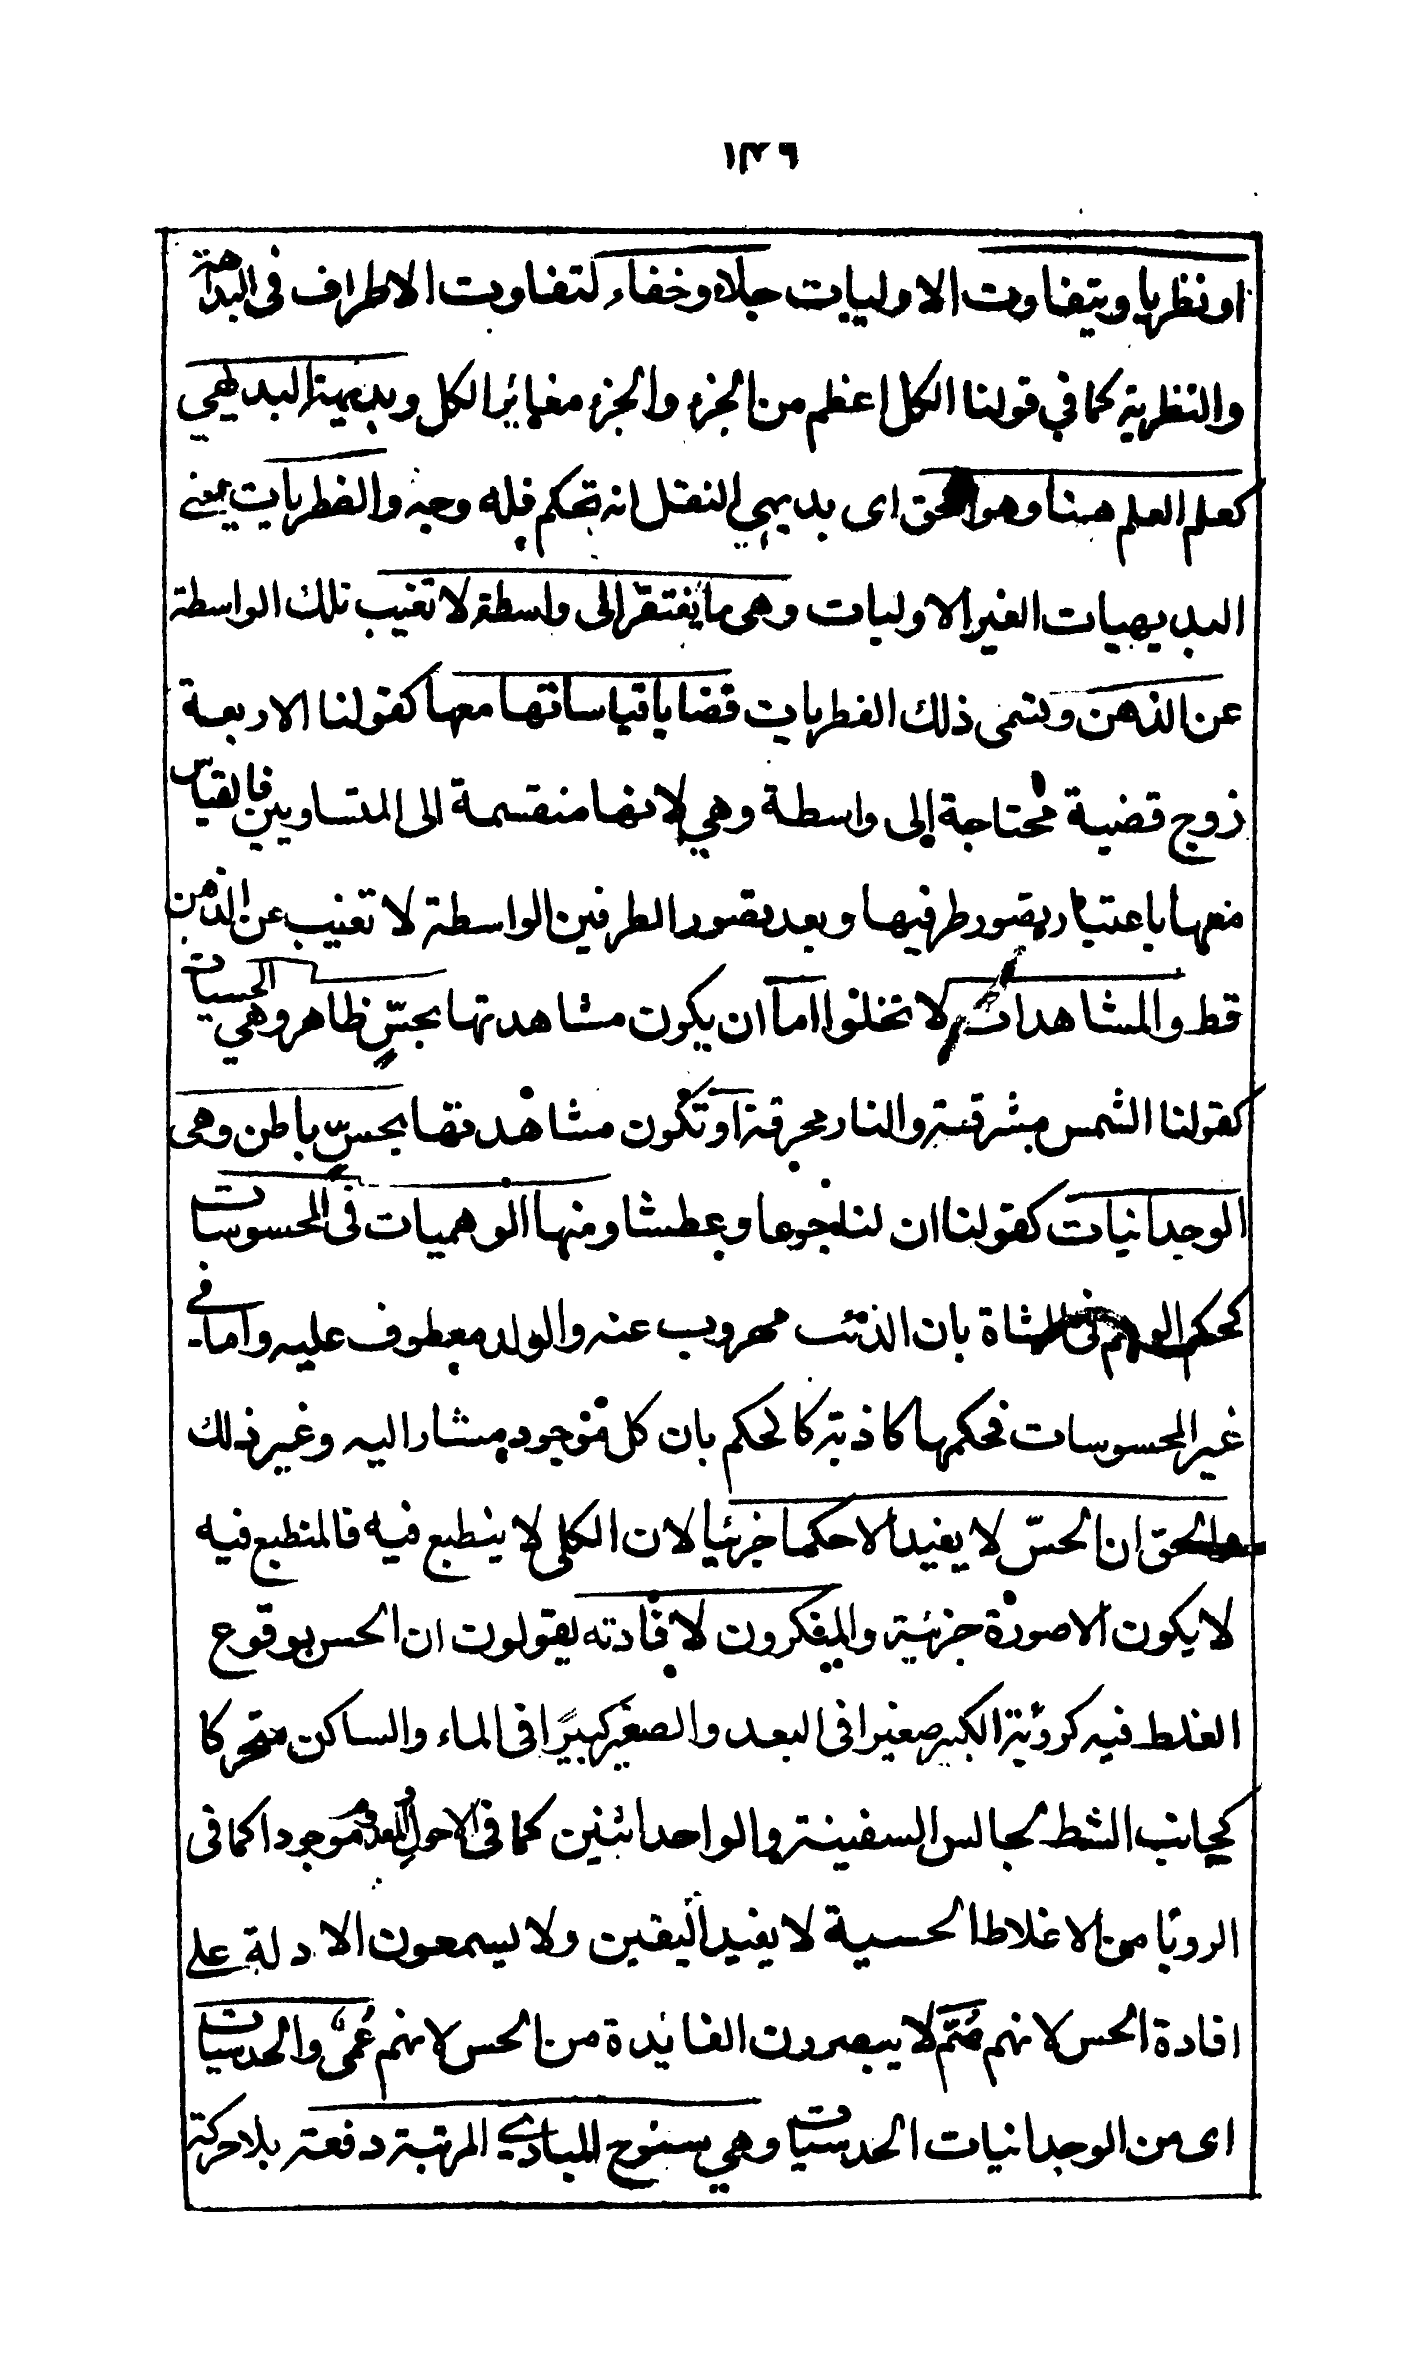 ١٣٦
او نظريا ويتفاوت الاوليات جلاء وخفاء لتفاوت الاطراف فى البداهة
والنظرية كما في قولنا الكل اعظم من الجزء والجزء مغاير الكل وبديهية البديهي
كعلم العلم هينا وهو الحق اى بديهي النقل انه تحكم فله وجه والفطريات بمعنى
البديهيات الغير الاوليات وهى ما يفتقر الى واسطة لا تغيب تلك الواسطة
عن الذهن ويسمى ذلك الفطريات قضايا قياساتها معها كقولنا الاربعة
زوج قضية محتاجة إلى واسطة وهي لانها منقسمة الى المتساويين فالقياس
معها باعتبار بتصور طرفيها وبعد بتصور الطرفين الواسطة لا تغيب عن الذهن
قط والمشاهدات لا تخلوا اما ان يكون مشاهدتها بحسّ ظاهر وهي الحسيات
كقولنا الشمس مشرقة والنار محرقة او تكون مشاهدتها بحسّ باطن وهى
الوجدانيات كقولنا ان لنا جوعا وعطشا ومنها الوهميات فى المحسوسات
كحكم الوهم فى الشاة بان الذئب مهروب عنه والولد معطوف عليه واما في
غير المحسوسات فحكمها كاذبة كالحكم بان كل موجود مشار اليه وغير ذلك
والحق ان الحسّ لا يفيد الا حكما جزئيا لان الكلى لا ينطبع فيه فالمنطبع فيه
لا يكون الا صورة جزئية والمفكرون لافادته يقولون ان الحس بوقوع
الغلط فيه كرؤية الكبير صغيرا فى البعد والصغير كبيرًا فى الماء والساكن متحركا
كجانب الشط لجالس السفينة والواحد اثنين كما فى الاحول والمعدوم موجودا كما فى
الرويا من الاغلاط الحسية لا يفيد اليقين ولا يسمعون الادلة على
افادة الحس لانهم صُمّ لا يبصرون الفايدة من الحس لانهم عُمىٌ والحدسيات
اى من الوجدانيات الحدسيات وهي سنوح المبادي المرتبة دفعة بلا حركة